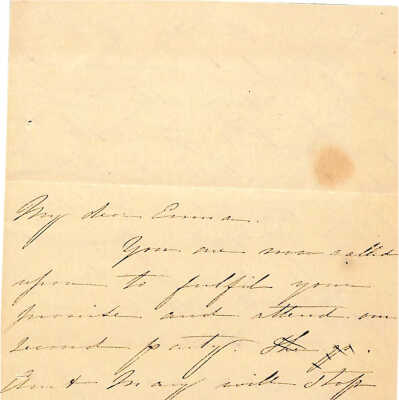 My dear Emma.
You are now called
upon to fulfil your
promise and attend our
second party. The
Aunt Mary will stop